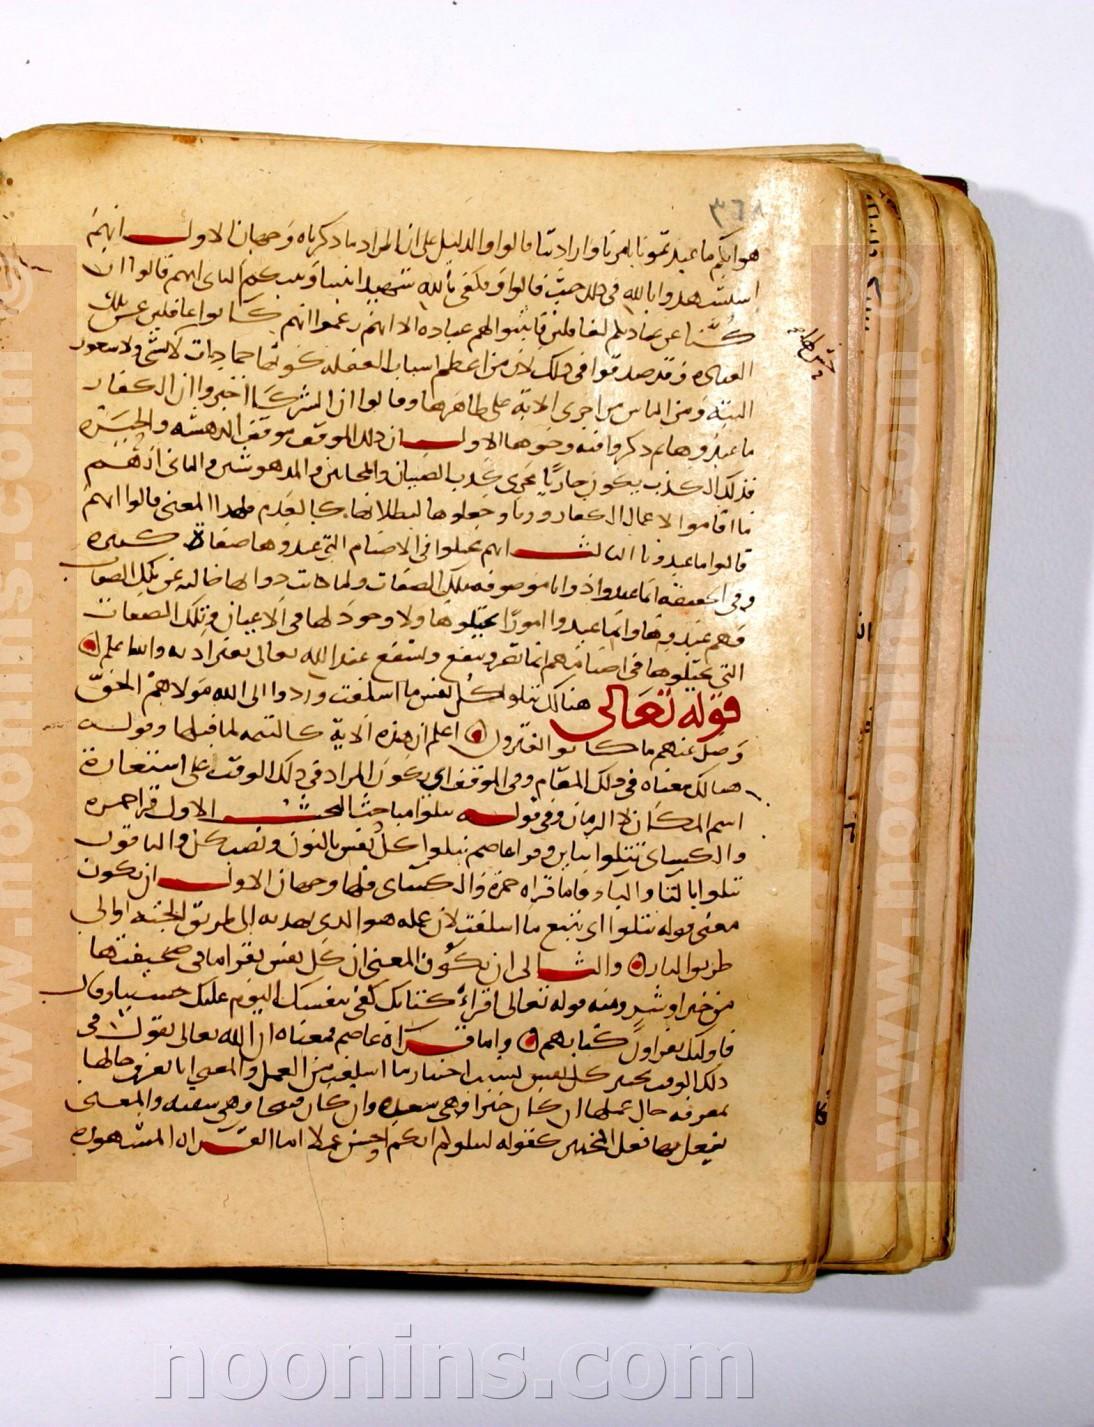 ٣٦٨
هو انكم ما عبدتمونا بامرنا وارادتنا قالوا والدليل على ان المراد ما ذكرناه وجهان الاول انهم
استشهدوا بالله في ذلك حيث قالوا فكفى بالله شهيدا بيننا وبينكم الثاني انهم قالوا ان
كنا عن عبادتكم لغافلين فاثبتوا لهم عبادة الا انهم زعموا انهم كانوا غافلين عن تلك
العبادة وقد صدقوا في ذلك لان من اعظم اسباب الغفلة كونها جمادات لا شي ولا شعور
البتة ومن الناس من اجرى الاية على ظاهرها وقالوا ان الشركا اخبروا ان الكفار
ما عبدوها ثم ذكروا فيه وجوها الاول ان ذلك الموقف موقف الدهشة والحيرة
فذلك الكذب يكون جاريا مجرى كذب الصبيان والمجانين والمدهوشين والثاني انهم
ما اقاموا لاعمال الكفار وزنا وجعلوها لبطلانها كالعدم فلهذا المعنى قالوا انهم
قالوا ما عبدونا الثالث انهم تخيلوا في الاصنام التي عبدوها صفات كثيرة
وفي الحقيقة انما عبدوا ذواتا موصوفة بتلك الصفات ولما كانت ذواتها خالية عن تلك الصفات
فهم ما عبدوها وانما عبدوا امورا تخيلوها ولا وجود لها في الاعيان وتلك الصفات
التي تخيلوها في اصنامهم انها تضر وتنفع وتشفع عند الله تعالى بغير اذنه والله اعلم
قوله تعالى هنالك تتلوا كل نفس ما اسلفت وردوا الى الله مولاهم الحق
وضل عنهم ما كانوا يفترون اعلم ان هذه الاية كالتتمة لما قبلها وقوله
هنالك معناه في ذلك المقام وفي الموقف او يكون المراد في ذلك الوقت على استعارة
اسم المكان للزمان وفي قوله تبلوا مباحث البحث الاول قرا حمزة
والكسائي تتلوا بتاين وقرا عاصم نبلوا كل نفس بالنون ونصب كل والباقون
تبلوا بالتا والباء فاما قراة حمزة والكسائي فلها وجهان الاول ان يكون
معنى قوله تتلوا اي تتبع ما اسلفت لان عمله هو الذي يهديه الى طريق الجنة او الى
طريق النار والثاني ان يكون المعنى ان كل نفس تقرا ما في صحيفتها
من خير او شر ومنه قوله تعالى اقرأ كتابك كفى بنفسك اليوم عليك حسيبا وقال
فاولئك يقراون كتابهم واما قراة عاصم فمعناه ان الله تعالى يقول في
ذلك الوقت نختبر كل نفس بسبب اختبار ما اسلفت من العمل والمعنى انا نعرف حالها
بمعرفة حال عملها ان كان خيرا فهي سعيدة وان كان قبيحا وهي شقية والمعنى
نفعل بها فعل المختبر كقوله ليبلوكم ايكم احسن عملا اما القراة المشهورة
noonins.com
www.noonins.com ©
www.noonins.com ©